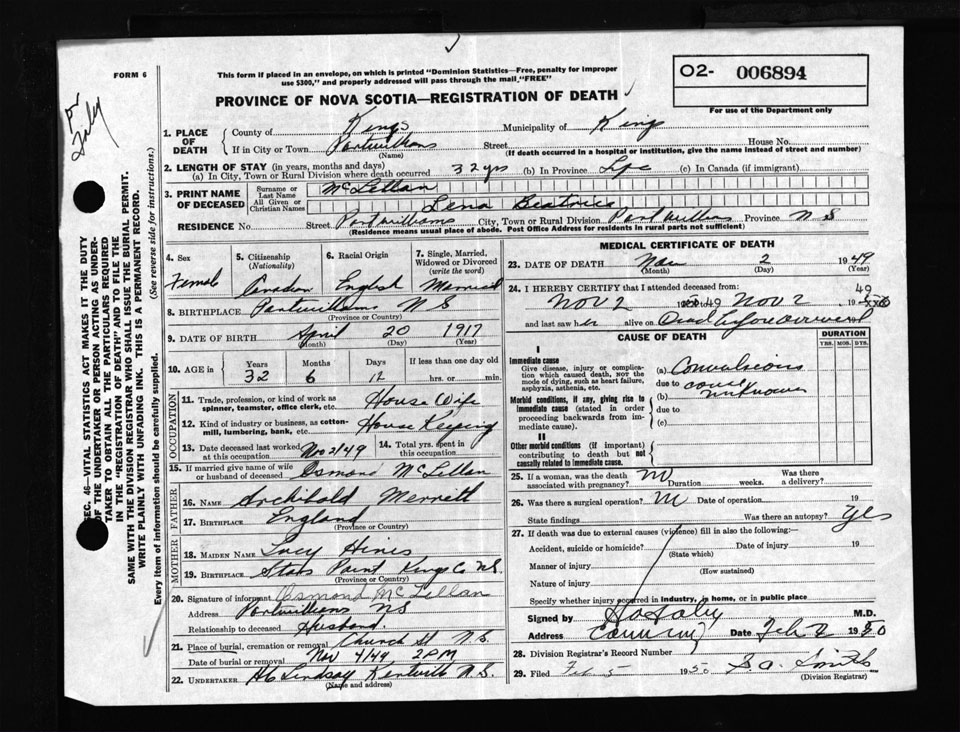 FORM 6
This form if placed in an envelope, on which is printed "Dominion Statistics—Free, penalty for improper
use $300," and properly addressed will pass through the mail, "FREE"
PROVINCE OF NOVA SCOTIA—REGISTRATION OF DEATH
02- 006894
For use of the Department only
1. PLACE OF DEATH County of Kings Municipality of Kings
If in City or Town Portwilliams Street House No.
(Name) (If death occurred in a hospital or institution, give the name instead of street and number)
2. LENGTH OF STAY (in years, months and days)
(a) In City, Town or Rural Division where death occurred 32 yrs (b) In Province Life (c) In Canada (if immigrant)
3. PRINT NAME OF DECEASED Surname or Last Name McLellan
All Given or Christian Names Lena Beatrice
RESIDENCE No. Street Portwilliams City, Town or Rural Division Port Williams Province N S
(Residence means usual place of abode. Post Office Address for residents in rural parts not sufficient)
4. Sex 5. Citizenship (Nationality) 6. Racial Origin 7. Single, Married, Widowed or Divorced (write the word)
Female Canadian English Married
8. BIRTHPLACE Portwilliams N S
(Province or Country)
9. DATE OF BIRTH April 20 1917
(Month) (Day) (Year)
10. AGE in Years Months Days If less than one day old
32 6 12 hrs. or min.
OCCUPATION
11. Trade, profession, or kind of work as
spinner, teamster, office clerk, etc. House Wife
12. Kind of industry or business, as cotton-
mill, lumbering, bank, etc. House Keeping
13. Date deceased last worked at this occupation Nov 2/49 14. Total yrs. spent in this occupation
15. If married give name of wife
or husband of deceased Osmond McLellan
FATHER
16. NAME Archibald Merritt
17. BIRTHPLACE England
(Province or Country)
MOTHER
18. MAIDEN NAME Lucy Hines
19. BIRTHPLACE Stars Point Kings Co N.S.
(Province or Country)
20. Signature of informant Osmond McLellan
Address Portwilliams NS
Relationship to deceased Husband.
21. Place of burial, cremation or removal Church St N.S.
Date of burial or removal Nov 4/49 2 PM
22. UNDERTAKER Lindsay Kentville N.S.
(Name and address)
MEDICAL CERTIFICATE OF DEATH
23. DATE OF DEATH Nov 2 1949
(Month) (Day) (Year)
24. I HEREBY CERTIFY that I attended deceased from:
Nov 2 49 Nov 2 49
and last saw her alive on Dead before arrival
CAUSE OF DEATH
DURATION
YRS. MOS. DYS.
I
Immediate cause
Give disease, injury or complication which caused death, NOT the mode of dying, such as heart failure, asphyxia, asthenia, etc.
(a) Convulsions
due to cause
Morbid conditions, if any, giving rise to immediate cause (stated in order proceeding backwards from immediate cause).
(b) unknown
due to
(c)
II
Other morbid conditions (if important) contributing to death but not causally related to immediate cause.
25. If a woman, was the death associated with pregnancy? no Duration weeks. Was there a delivery?
26. Was there a surgical operation? Date of operation 19
State findings Was there an autopsy? Yes
27. If death was due to external causes (violence) fill in also the following:
Accident, suicide or homicide? Date of injury 19
(State which)
Manner of injury
(How sustained)
Nature of injury
Specify whether injury occurred in industry, in home, or in public place
Signed by M.D.
Address Canning Date Feb 2 1950
28. Division Registrar's Record Number
29. Filed Feb 5 1950 S. A. Smith
(Division Registrar)
SEC. 46—VITAL STATISTICS ACT MAKES IT THE DUTY
OF THE UNDERTAKER OR PERSON ACTING AS UNDER-
TAKER TO OBTAIN ALL THE PARTICULARS REQUIRED
IN THE "REGISTRATION OF DEATH" AND TO FILE THE
SAME WITH THE DIVISION REGISTRAR WHO SHALL ISSUE THE BURIAL PERMIT.
WRITE PLAINLY WITH UNFADING INK. THIS IS A PERMANENT RECORD.
Every item of information should be carefully supplied. (See reverse side for instructions.)